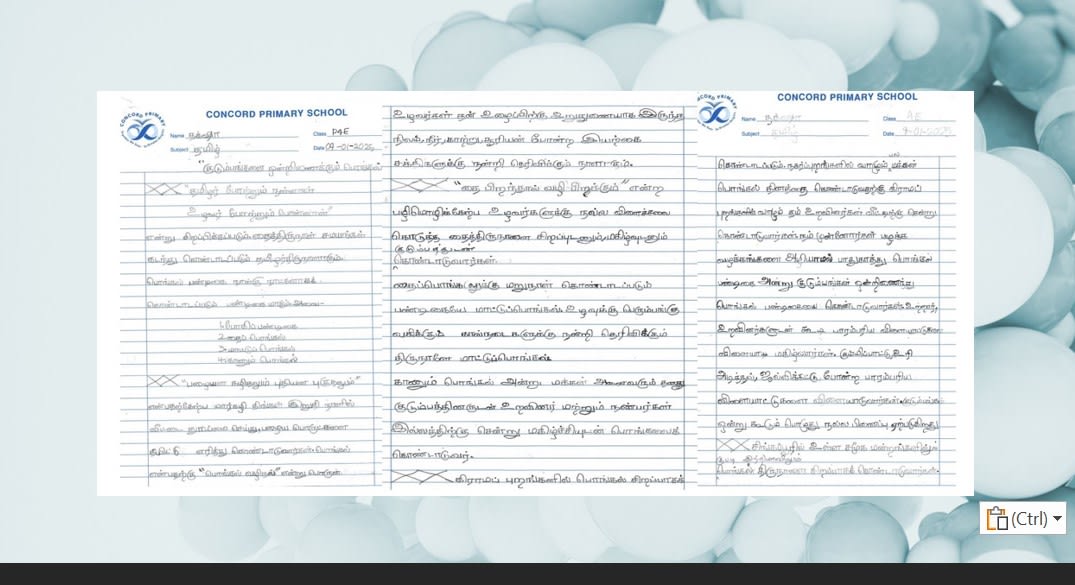 CONCORD PRIMARY SCHOOL
Name
Class P4E
Subject தமிழ்
Date 09-01-2025
"குடும்பங்களை ஒன்றிணைக்கும் பொங்கல்"
"தமிழர் போற்றும் நன்னாள்
உழவர் போற்றும் பொன்னாள்"
என்று சிறப்பிக்கப்படும் தைத்திருநாள்
கடந்து கொண்டாடப்படும் தமிழர்திருநாளாகும்.
பொங்கல் பண்டிகை நான்கு நாட்களாகக்
கொண்டாடப்படும் பண்டிகை யாகும் அவை-
1.போகிப் பண்டிகை
2.தைப் பொங்கல்
3.மாட்டுப் பொங்கல்
4.காணும் பொங்கல்
"பழையன கழிதலும் புதியன புகுதலும்"
என்பதற்கேற்ப மார்கழி இறுதி நாளில்
வீட்டை தூய்மை செய்து பழைய பொருட்களை
எரித்து கொண்டாடுவார்கள்.பொங்கல்
என்பதற்கு "பொங்கி வழிதல்" என்று பொருள்.
உழவர்கள் தன் உழைப்பிற்கு உறுதுணையாக இருந்த
நிலம்,நீர்,காற்று,சூரியன் போன்ற இயற்கை
சக்திகளுக்கு நன்றி தெரிவிக்கும் நாளாகும்.
"தை பிறந்தால் வழி பிறக்கும்" என்ற
பழிமொழிக்கேற்ப உழவர்களுக்கு நல்ல விளைச்சலை
கொடுத்த தைத்திருநாளை சிறப்புடனும்,மகிழ்வுடனும்
குடும்பத்துடன்
கொண்டாடுவார்கள்.
தைப்பொங்கலுக்கு மறுநாள் கொண்டாடப்படும்
பண்டிகையே மாட்டுப்பொங்கல்.உழவுக்கு பெரும்பங்கு
வகிக்கும் கால்நடைகளுக்கு நன்றி தெரிவிக்கும்
திருநாளே மாட்டுப்பொங்கல்.
காணும் பொங்கல் அன்று மக்கள் அனைவரும் தனது
குடும்பத்தினருடன் உறவினர் மற்றும் நண்பர்கள்
இல்லத்திற்கு சென்று மகிழ்ச்சியுடன் பொங்கலைக்
கொண்டாடுவர்.
கிராமப் புறங்களில் பொங்கல் சிறப்பாகக்
CONCORD PRIMARY SCHOOL
Name
Class 4E
Subject தமிழ்
Date 9-01-2025
கொண்டாடப்படும். நகர்ப்புறங்களில் வாழும் மக்கள்
பொங்கல் தினத்தை கொண்டாடுவதற்கு கிராமப்
புறங்களில் வாழும் தம் உறவினர்கள் வீட்டிற்கு சென்று
கொண்டாடுவார்கள்.நம் முன்னோர்கள் பழக்க
வழக்கங்களை அழியாமல் பாதுகாத்து பொங்கல்
பண்டிகை அன்று குடும்பங்கள் ஒன்றிணைந்து
பொங்கல் பண்டிகையை கொண்டாடுவார்கள்.உற்றார்,
உறவினர்களுடன் கூடி பாரம்பரிய விளையாட்டுகளை
விளையாடி மகிழ்வார்கள். கும்மிப்பாட்டு,உறி
அடித்தல்,ஜல்லிக்கட்டு போன்ற பாரம்பரிய
விளையாட்டுகளை விளையாடுவார்கள்.
ஒன்று கூடும் பொழுது நல்ல பிணைப்பு ஏற்படுகிறது
சிங்கப்பூரில் உள்ள சமூக மன்றங்களிலும்
பொங்கல் திருநாளை சிறப்பாகக் கொண்டாடுவார்கள்.
(Ctrl)